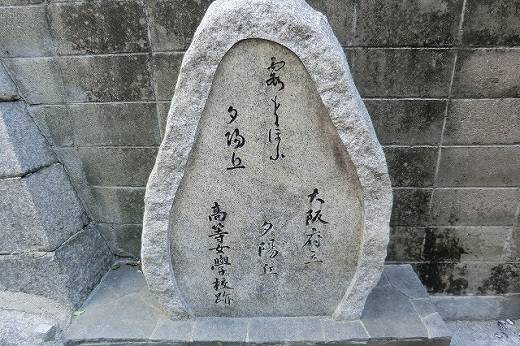 夕陽丘
大阪府立
夕陽丘
高等女學校跡